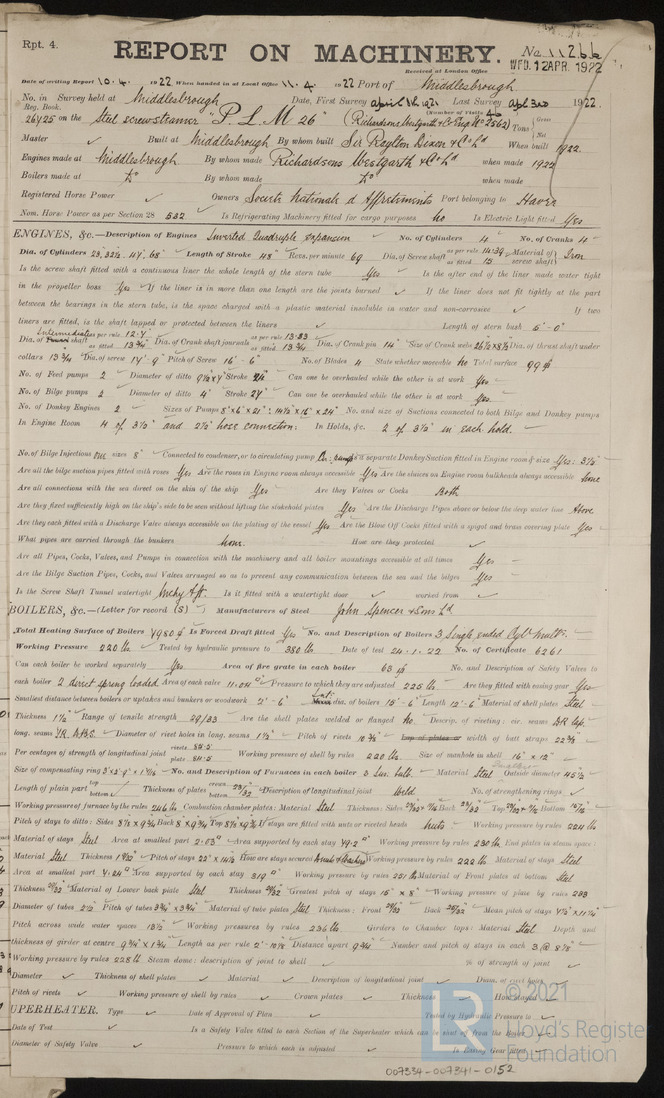 Rpt. 4.
REPORT ON MACHINERY.
No. 11266
Received at London Office
WED. 12 APR. 1922
Date of writing Report 10.4. 1922 When handed in at Local Office 11.4. 1922 Port of Middlesbrough
No. in Survey held at Middlesbrough Date, First Survey April 8th 1921 Last Survey Apl 3rd 1922
Reg. Book. (Number of Visits 46)
26425 on the steel screw steamer "P. L. M 26" (Richardsons Westgarth & Co Eng No 2562) Tons Gross Net
Master ✓ Built at Middlesbrough By whom built Sir Raylton Dixon & Co Ld When built 1922
Engines made at Middlesbrough By whom made Richardsons Westgarth & Co Ld when made 1922
Boilers made at Do By whom made Do when made
Registered Horse Power ✓ Owners Societe Nationale d'Affretements Port belonging to Havre
Nom. Horse Power as per Section 28 532 Is Refrigerating Machinery fitted for cargo purposes no Is Electric Light fitted Yes
ENGINES, &c.—Description of Engines Inverted Quadruple expansion No. of Cylinders 4 No. of Cranks 4
Dia. of Cylinders 23, 32½, 47, 68" Length of Stroke 48" Revs. per minute 69 Dia. of Screw shaft as per rule 14.39 as fitted 15 Material of screw shaft Iron
Is the screw shaft fitted with a continuous liner the whole length of the stern tube Yes Is the after end of the liner made water tight
in the propeller boss Yes If the liner is in more than one length are the joints burned ✓ If the liner does not fit tightly at the part
between the bearings in the stern tube, is the space charged with a plastic material insoluble in water and non-corrosive ✓ If two
liners are fitted, is the shaft lapped or protected between the liners ✓ Length of stern bush 5'-0"
Dia. of Intermediate shaft as per rule 12.7 as fitted 13¾ Dia. of Crank shaft journals as per rule 13.33 as fitted 13¾ Dia. of Crank pin 14" Size of Crank webs 26½ x 8½ Dia. of thrust shaft under
collars 13¾ Dia. of screw 17'-9" Pitch of Screw 16'-6" No. of Blades 4 State whether moveable no Total surface 99
No. of Feed pumps 2 Diameter of ditto Stroke Can one be overhauled while the other is at work Yes
No. of Bilge pumps 2 Diameter of ditto 4" Stroke 27" Can one be overhauled while the other is at work Yes
No. of Donkey Engines 2 Sizes of Pumps No. and size of Suctions connected to both Bilge and Donkey pumps
In Engine Room 4 of 3½" and 2½" hose connection: In Holds, &c. 2 of 3½" in each hold.
No. of Bilge Injections one sizes 8" Connected to condenser, or to circulating pump Cir. pump Is a separate Donkey Suction fitted in Engine room & size Yes: 3½"
Are all the bilge suction pipes fitted with roses Yes Are the roses in Engine room always accessible Yes Are the sluices on Engine room bulkheads always accessible none
Are all connections with the sea direct on the skin of the ship Yes Are they Valves or Cocks Both
Are they fixed sufficiently high on the ship's side to be seen without lifting the stokehold plates Yes Are the Discharge Pipes above or below the deep water line Above
Are they each fitted with a Discharge Valve always accessible on the plating of the vessel Yes Are the Blow Off Cocks fitted with a spigot and brass covering plate Yes
What pipes are carried through the bunkers none. How are they protected ✓
Are all Pipes, Cocks, Valves, and Pumps in connection with the machinery and all boiler mountings accessible at all times Yes
Are the Bilge Suction Pipes, Cocks, and Valves arranged so as to prevent any communication between the sea and the bilges Yes
Is the Screw Shaft Tunnel watertight Mchy Aft. Is it fitted with a watertight door ✓ worked from ✓
BOILERS, &c.—(Letter for record (S) ) Manufacturers of Steel John Spencer & Sons Ld
Total Heating Surface of Boilers 7980 Is Forced Draft fitted Yes No. and Description of Boilers 3 Single ended Cyl. Mult.
Working Pressure 220 lb Tested by hydraulic pressure to 380 lb Date of test 24.1.22 No. of Certificate 6261
Can each boiler be worked separately Yes Area of fire grate in each boiler 63 No. and Description of Safety Valves to
each boiler 2 direct spring loaded Area of each valve 11.04 Pressure to which they are adjusted 225 lb Are they fitted with easing gear Yes
Smallest distance between boilers or uptakes and bunkers or woodwork 2'-6" Int. dia. of boilers 15'-6" Length 12'-6" Material of shell plates Steel
Thickness 1½" Range of tensile strength 29/33 Are the shell plates welded or flanged no. Descrip. of riveting: cir. seams D.R. lap.
long. seams T.R. D.B.S. Diameter of rivet holes in long. seams 1½ Pitch of rivets 10¾ Lap of plates or width of butt straps 22¾
Per centages of strength of longitudinal joint rivets 88.5 plate 84.5 Working pressure of shell by rules 220 lb. Size of manhole in shell 16" x 12"
Size of compensating ring No. and Description of Furnaces in each boiler 3 Material Steel Outside diameter 45½
Length of plain part top bottom ✓ Thickness of plates crown bottom 23/32 Description of longitudinal joint Weld No. of strengthening rings ✓
Working pressure of furnace by the rules 246 lb Combustion chamber plates: Material Steel Thickness: Sides Back 23/32 Top Bottom
Pitch of stays to ditto: Sides Back 8 x 9¾ Top If stays are fitted with nuts or riveted heads nuts Working pressure by rules 224 lb
Material of stays Steel Area at smallest part 2.03 Area supported by each stay 79.2 Working pressure by rules 230 lb End plates in steam space:
Material Steel Thickness Pitch of stays How are stays secured Working pressure by rules 222 lb Material of stays Steel
Area at smallest part 7.24 Area supported by each stay 319 Working pressure by rules 251 lb Material of Front plates at bottom Steel
Thickness Material of Lower back plate Steel Thickness Greatest pitch of stays 15" x 8" Working pressure of plate by rules 283
Diameter of tubes 2½ Pitch of tubes 3¾ x 3¾ Material of tube plates Steel Thickness: Front Back Mean pitch of stays
Pitch across wide water spaces 13½ Working pressures by rules 236 lb. Girders to Chamber tops: Material Steel Depth and
thickness of girder at centre 9¾ x 1¾ Length as per rule Distance apart 9¾ Number and pitch of stays in each 3 @ 8⅞
Working pressure by rules 228 lb Steam dome: description of joint to shell ✓ % of strength of joint
Diameter ✓ Thickness of shell plates ✓ Material ✓ Description of longitudinal joint ✓ Diam. of rivet holes
Pitch of rivets ✓ Working pressure of shell by rules ✓ Crown plates ✓ Thickness ✓ How stayed
UPERHEATER. Type ✓ Date of Approval of Plan ✓ Tested by Hydraulic Pressure to
Date of Test ✓ Is a Safety Valve fitted to each Section of the Superheater which can be shut off from the Boiler
Diameter of Safety Valve ✓ Pressure to which each is adjusted ✓ Is Easing Gear fitted
LR
© 2021
Lloyd's Register
Foundation
007334-007341-0152